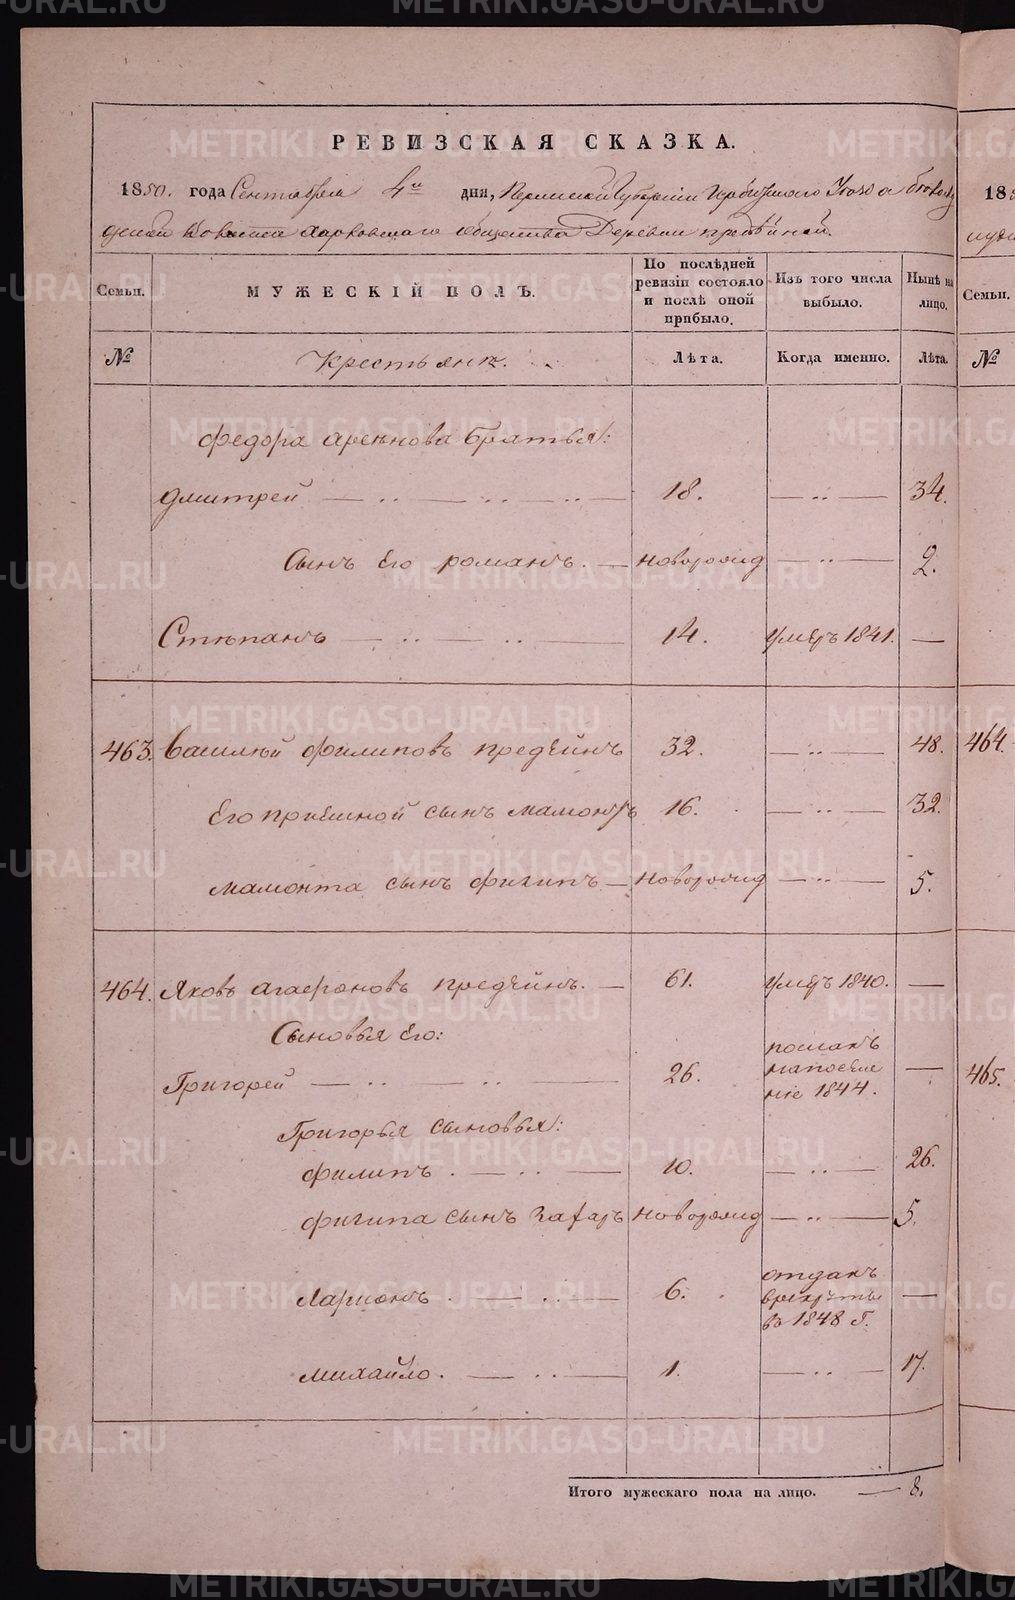 РЕВИЗСКАЯ СКАЗКА.
1850. года Сентября 4го дня, Пермской Губерніи Ирбитского Уезда
волости Харковскаго общества Деревни предѣиной.
Семьи.
МУЖЕСКІЙ ПОЛЪ.
По послѣдней ревизіи состояло и послѣ оной прибыло.
Изъ того числа выбыло.
Нынѣ на лицо.
№
Крестьянъ.
Лѣта.
Когда именно.
Лѣта.
Федора арефиова братья:
дмитрей 18. 34.
Сынъ Его романъ. новорожд 2.
Степанъ 14. умеръ 1841.
463. Василѣй филиповъ предѣинъ 32. 48.
Его приемной сынъ мамонтъ 16. 32.
мамонта сынъ филипъ новорожд 5.
464. Яковъ агафоновъ предѣинъ. 61. умеръ 1840.
Сыновья Его:
Григорей 26. посланъ на поселение 1844.
Григорья сыновья:
филипъ. 10. 26.
филипа сынъ Захаръ новорожд 5.
Ларионъ. 6. отданъ в рекруты въ 1848 г.
михайло. 1. 17.
Итого мужескаго пола на лицо. 8.
18
Семьи.
№
464.
465.
METRIKI.GASO-URAL.RU